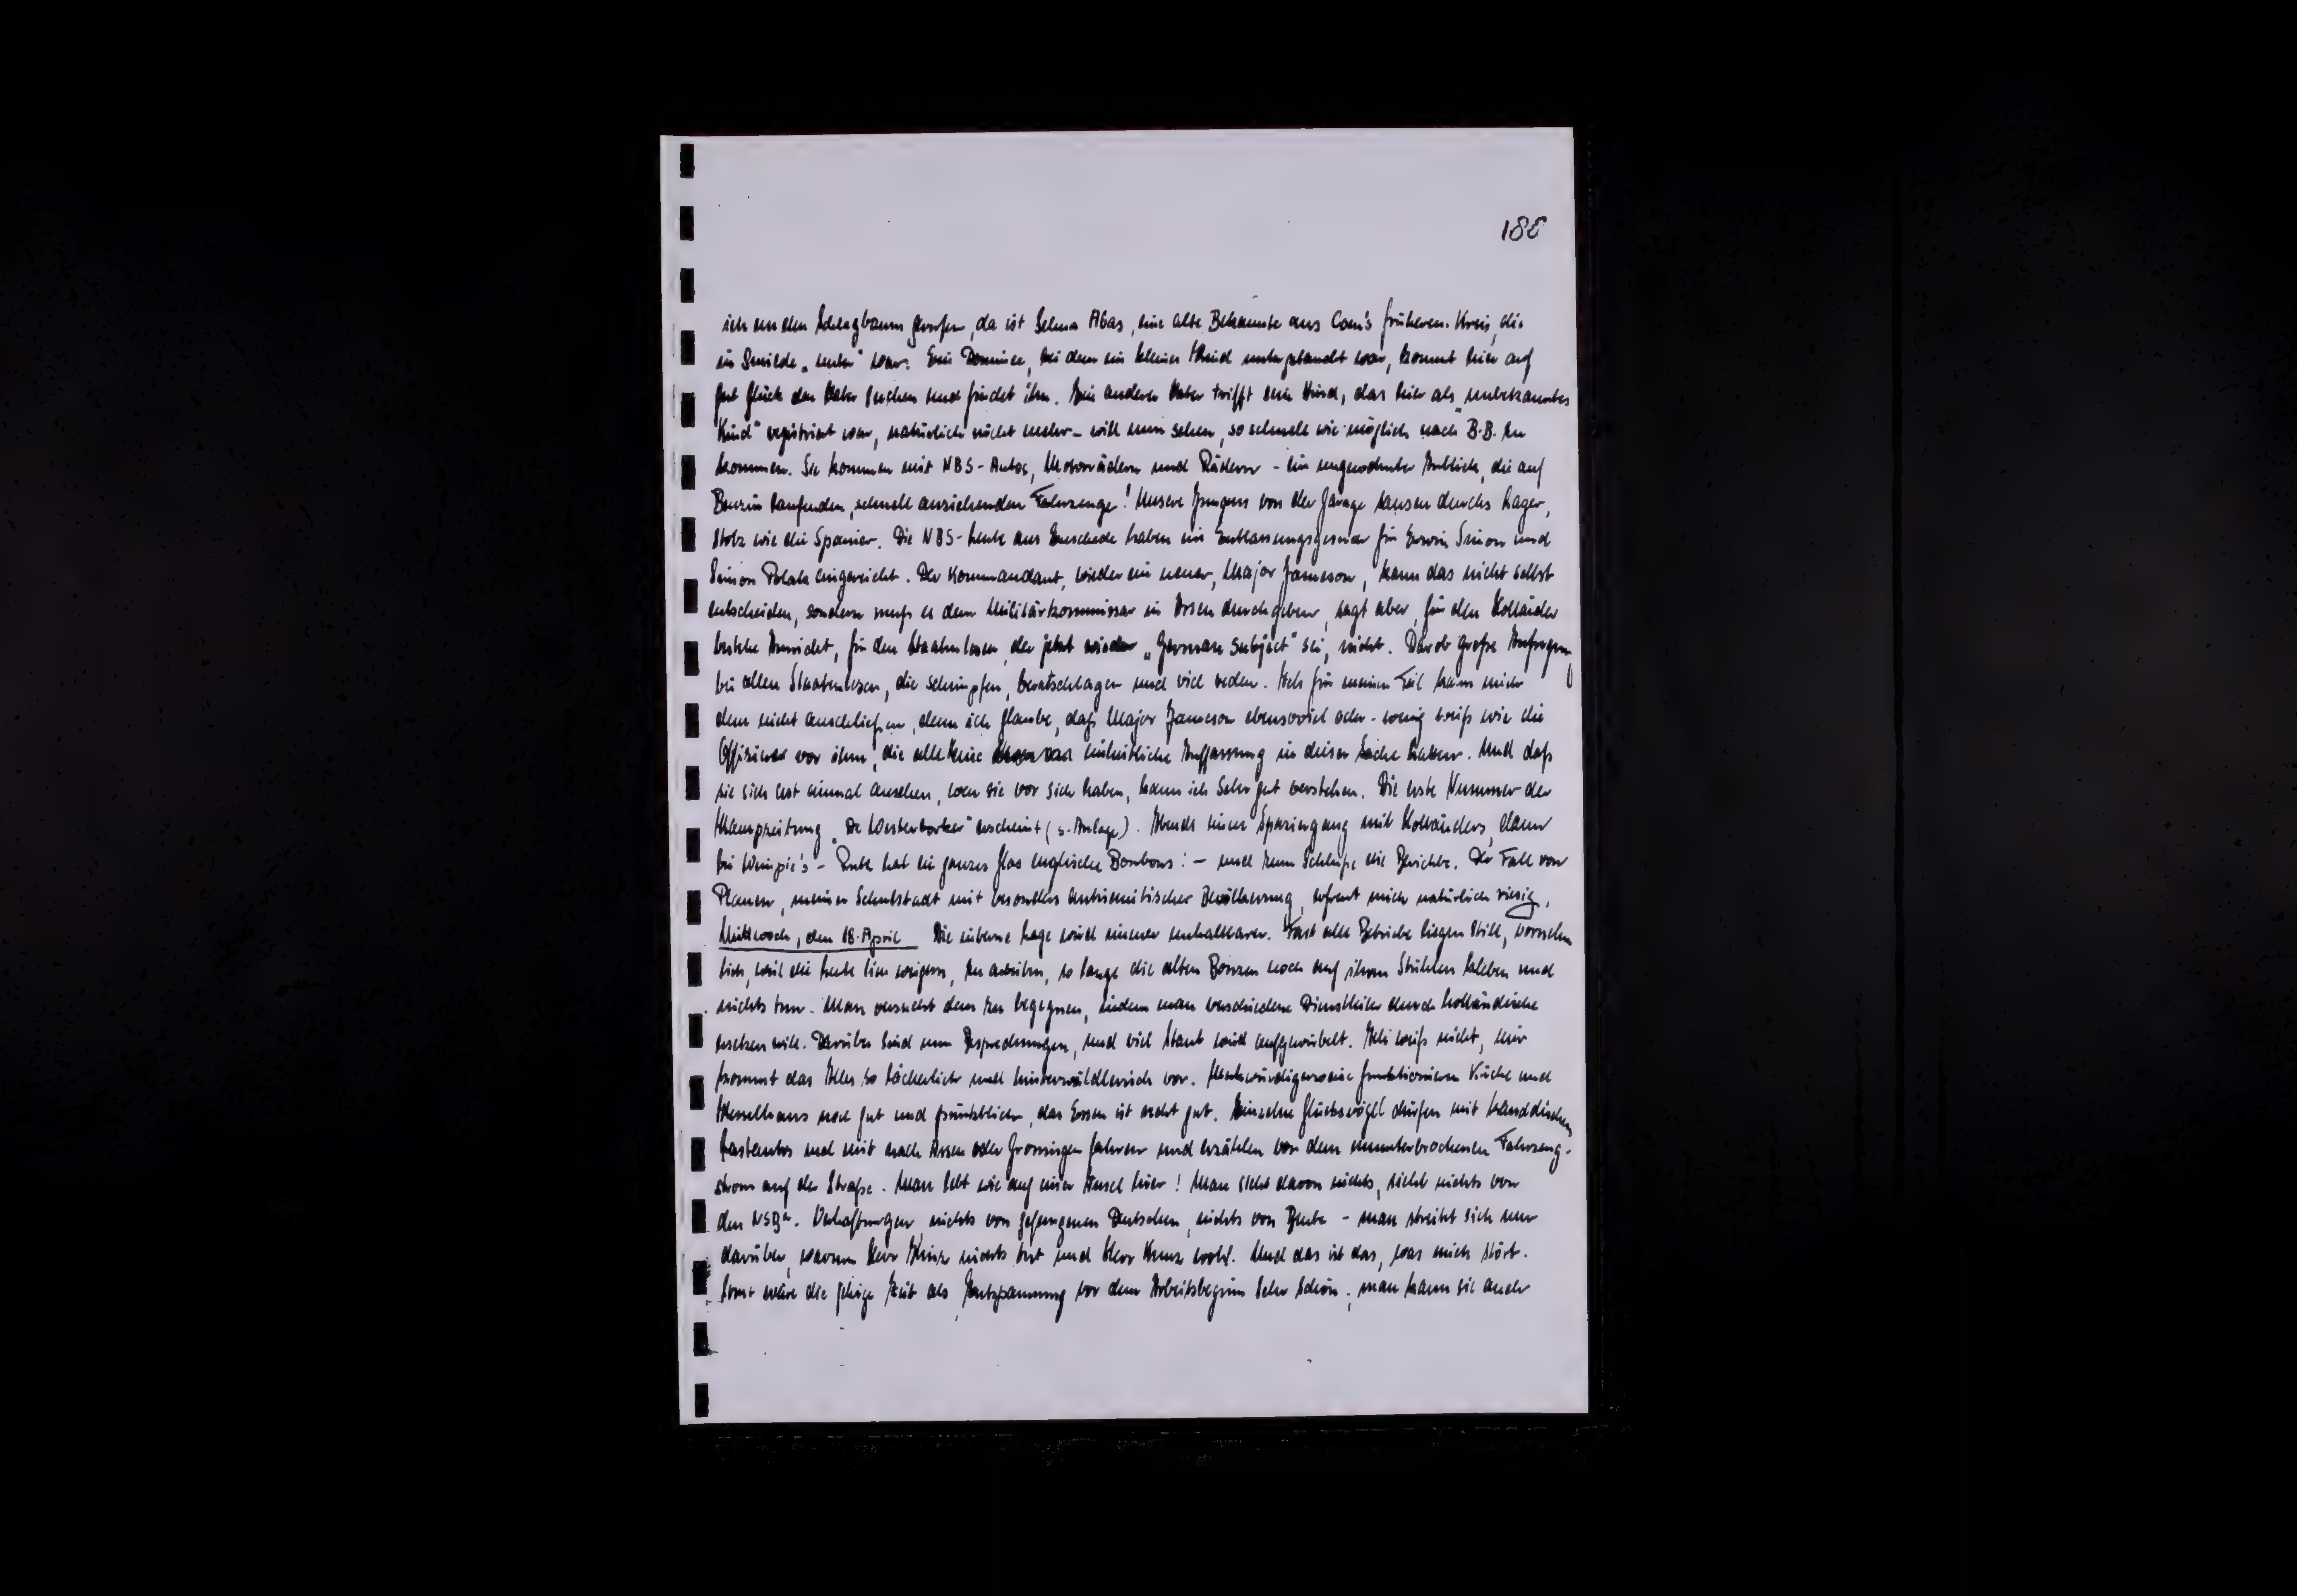 188
ich an den Schlagbaum gerufen, da ist Selma Abas, eine alte Bekannte aus Com's früherem Kreis, die
in Smilde „unter" war. Ein Dominee, bei dem ein kleines Kind untergetaucht war, kommt hier auf
gut Glück den Vater suchen und findet ihn. Ein anderer Vater trifft sein Kind, das hier als „unbekanntes
Kind" registriert war, natürlich nicht mehr - will nun sehen, so schnell wie möglich nach B.B. zu
kommen. Sie kommen mit NBS-Autos, Motorrädern und Rädern - ein ungewohnter Anblick, die auf
Benzin laufenden, schnell anziehenden Fahrzeuge! Unsere Jungens von der Garage sausen durchs Lager,
stolz wie die Spanier. Die NBS-Leute aus Enschede haben ein Entlassungsgesuch für Erwin Simon und
Simon Polak eingereicht. Der Kommandant, wieder ein neuer, Major Jameson, kann das nicht selbst
entscheiden, sondern muß es dem Militärkommissar in Assen durchgeben, sagt aber, für den Holländer
bestehe Aussicht, für den Staatenlosen, der jetzt wieder „German subject" sei, nicht. Darob große Aufregung
bei allen Staatenlosen, die schimpfen, beratschlagen und viel reden. Ich für meinen Teil kann mich
dem nicht anschließen, denn ich glaube, daß Major Jameson ebensoviel oder - wenig weiß wie die
Offiziere vor ihm, die alle keine einheitliche Auffassung in dieser Sache hatten. Und daß
sie sich erst einmal ansehen, wen sie vor sich haben, kann ich sehr gut verstehen. Die erste Nummer der
Kampzeitung „De Westerborker" erscheint (s. Anlage). Abends einen Spaziergang mit Holländers, dann
bei Wimpie's - Ruth hat ein ganzes Glas englische Bonbons! - und zum Schluß die Berichte. Der Fall von
Plauen, meiner Schulstadt mit besonders antisemitischer Bevölkerung, erfreut mich natürlich riesig.
Mittwoch, den 18. April Die interne Lage wird immer unhaltbarer. Fast alle Betriebe liegen still, vornehm
lich, weil die Leute sich weigern, zu arbeiten, so lange die alten Bonzen noch auf ihren Stühlen kleben und
nichts tun. Man versucht dem zu begegnen, indem man verschiedene Dienstleiter durch holländische
ersetzen will. Darüber sind nun Besprechungen, und viel Staub wird aufgewirbelt. Ich weiß nicht, mir
kommt das Alles so lächerlich und hinterwäldlerisch vor. Merkwürdigerweise funktionieren Küche und
Kesselhaus noch gut und pünktlich, das Essen ist recht gut. Einzelne Glücksvögel dürfen mit kanadischen
Lastautos mal mit nach Assen oder Groningen fahren und erzählen von dem ununterbrochenen Fahrzeug-
strom auf der Straße. Man lebt wie auf einer Insel hier! Man sieht davon nichts, sieht nichts von
den NSBer-Verhaftungen, nichts von gefangenen Deutschen, nichts von Beute - man streitet sich nur
darüber, warum Herr Hinz nichts tut und Herr Kunz wohl. Und das ist das, was mich stört.
Sonst wäre die jetzige Zeit als Entspannung vor dem Arbeitsbeginn sehr schön; man kann sie auch